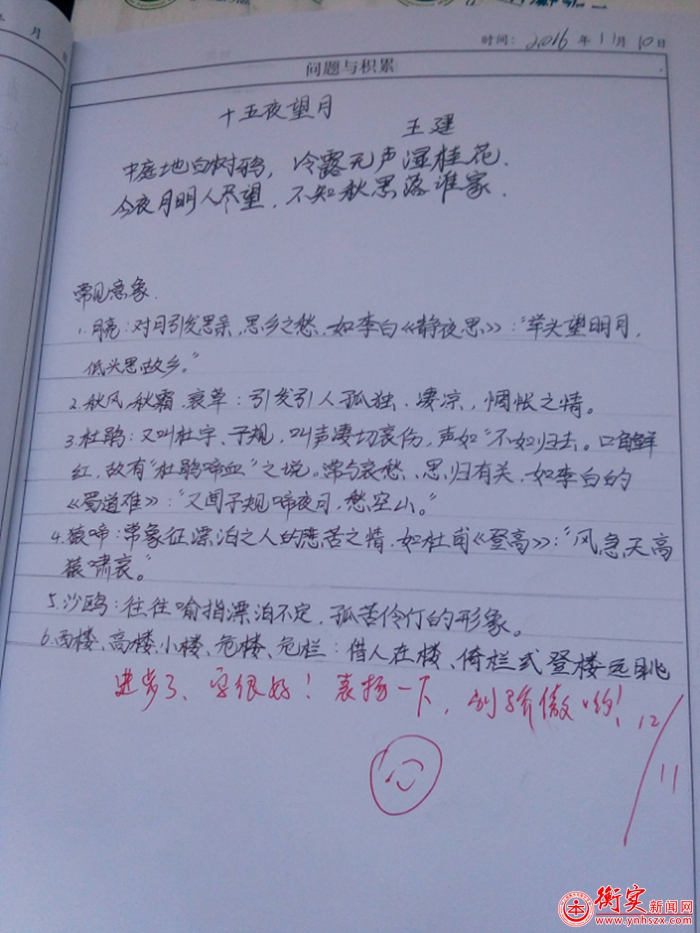 年 月
时间: 2016 年 11月 10日
问题与积累
十五夜望月
王建
中庭地白树鸦,冷露无声湿桂花.
今夜月明人尽望,不知秋思落谁家.
常见意象.
1.月亮:对月引发思亲,思乡之愁,如李白《静夜思》:"举头望明月,
低头思故乡。"
2.秋风,秋霜,衰草:引发引人孤独、凄凉,惆怅之情。
3.杜鹃:又叫杜宇、子规,叫声凄切哀伤,声如"不如归去。口角鲜
红,故有"杜鹃啼血"之说。常与哀愁、思归有关,如李白的
《蜀道难》:"又闻子规啼夜月,愁空山。"
4.猿啼:常象征漂泊之人的悲苦之情,如杜甫《登高》:"风急天高
猿啸哀。"
5.沙鸥:往往喻指漂泊不定,孤苦伶仃的形象。
6.西楼、高楼、小楼、危楼、危栏:借人在楼、倚栏或登楼远眺
进步了、字很好!表扬一下,别骄傲哟!
12/11
衡实新闻网
www.ynhszx.com